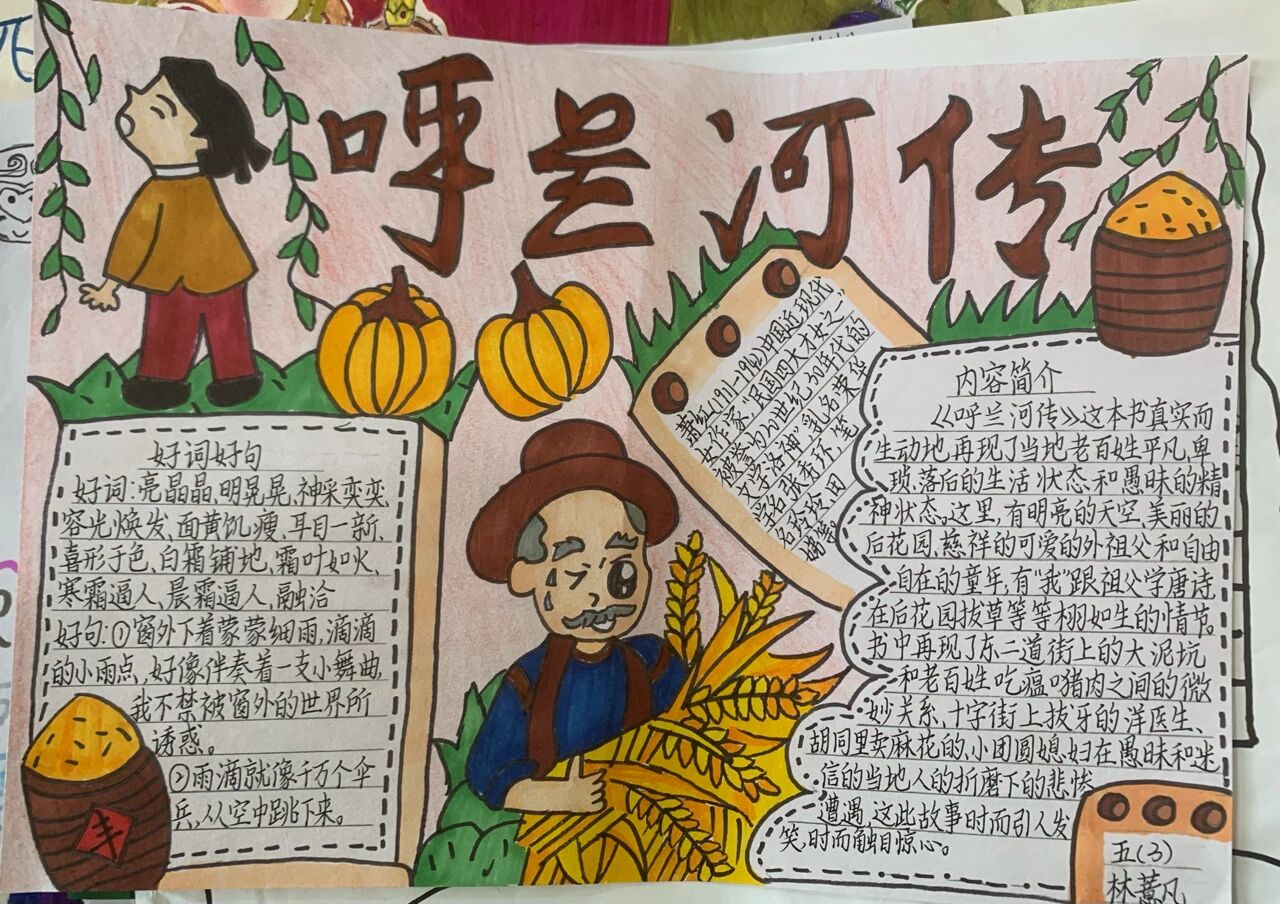 呼兰河传
好词好句
好词:亮晶晶、明晃晃、神采奕奕、
容光焕发、面黄饥瘦、耳目一新、
喜形于色、白霜铺地、霜叶如火、
寒霜逼人、晨霜逼人、融洽
好句:①窗外下着蒙蒙细雨,滴滴
的小雨点,好像伴奏着一支小舞曲,
我不禁被窗外的世界所
诱惑。
②雨滴就像千万个伞
兵,从空中跳下来。
丰
萧红(1911-1942)中国近现代
女作家,"民国四大才女"之一,
被誉为"20世纪30年代的
文学洛神",乳名荣华,
学名张秀环,笔
名玲玲、田
娣等。
内容简介
《呼兰河传》这本书真实而
生动地再现了当地老百姓平凡、卑
琐、落后的生活状态和愚昧的精
神状态。这里,有明亮的天空、美丽的
后花园、慈祥的可爱的外祖父和自由
自在的童年,有"我"跟祖父学唐诗,
在后花园拔草等等栩如生的情节。
书中再现了东二道街上的大泥坑
和老百姓吃瘟猪肉之间的微
妙关系、十字街上拔牙的洋医生、
胡同里卖麻花的、小团圆媳妇在愚昧和迷
信的当地人的折磨下的悲惨
遭遇,这些故事时而引人发
笑,时而触目惊心。
五(3)
林薏凡